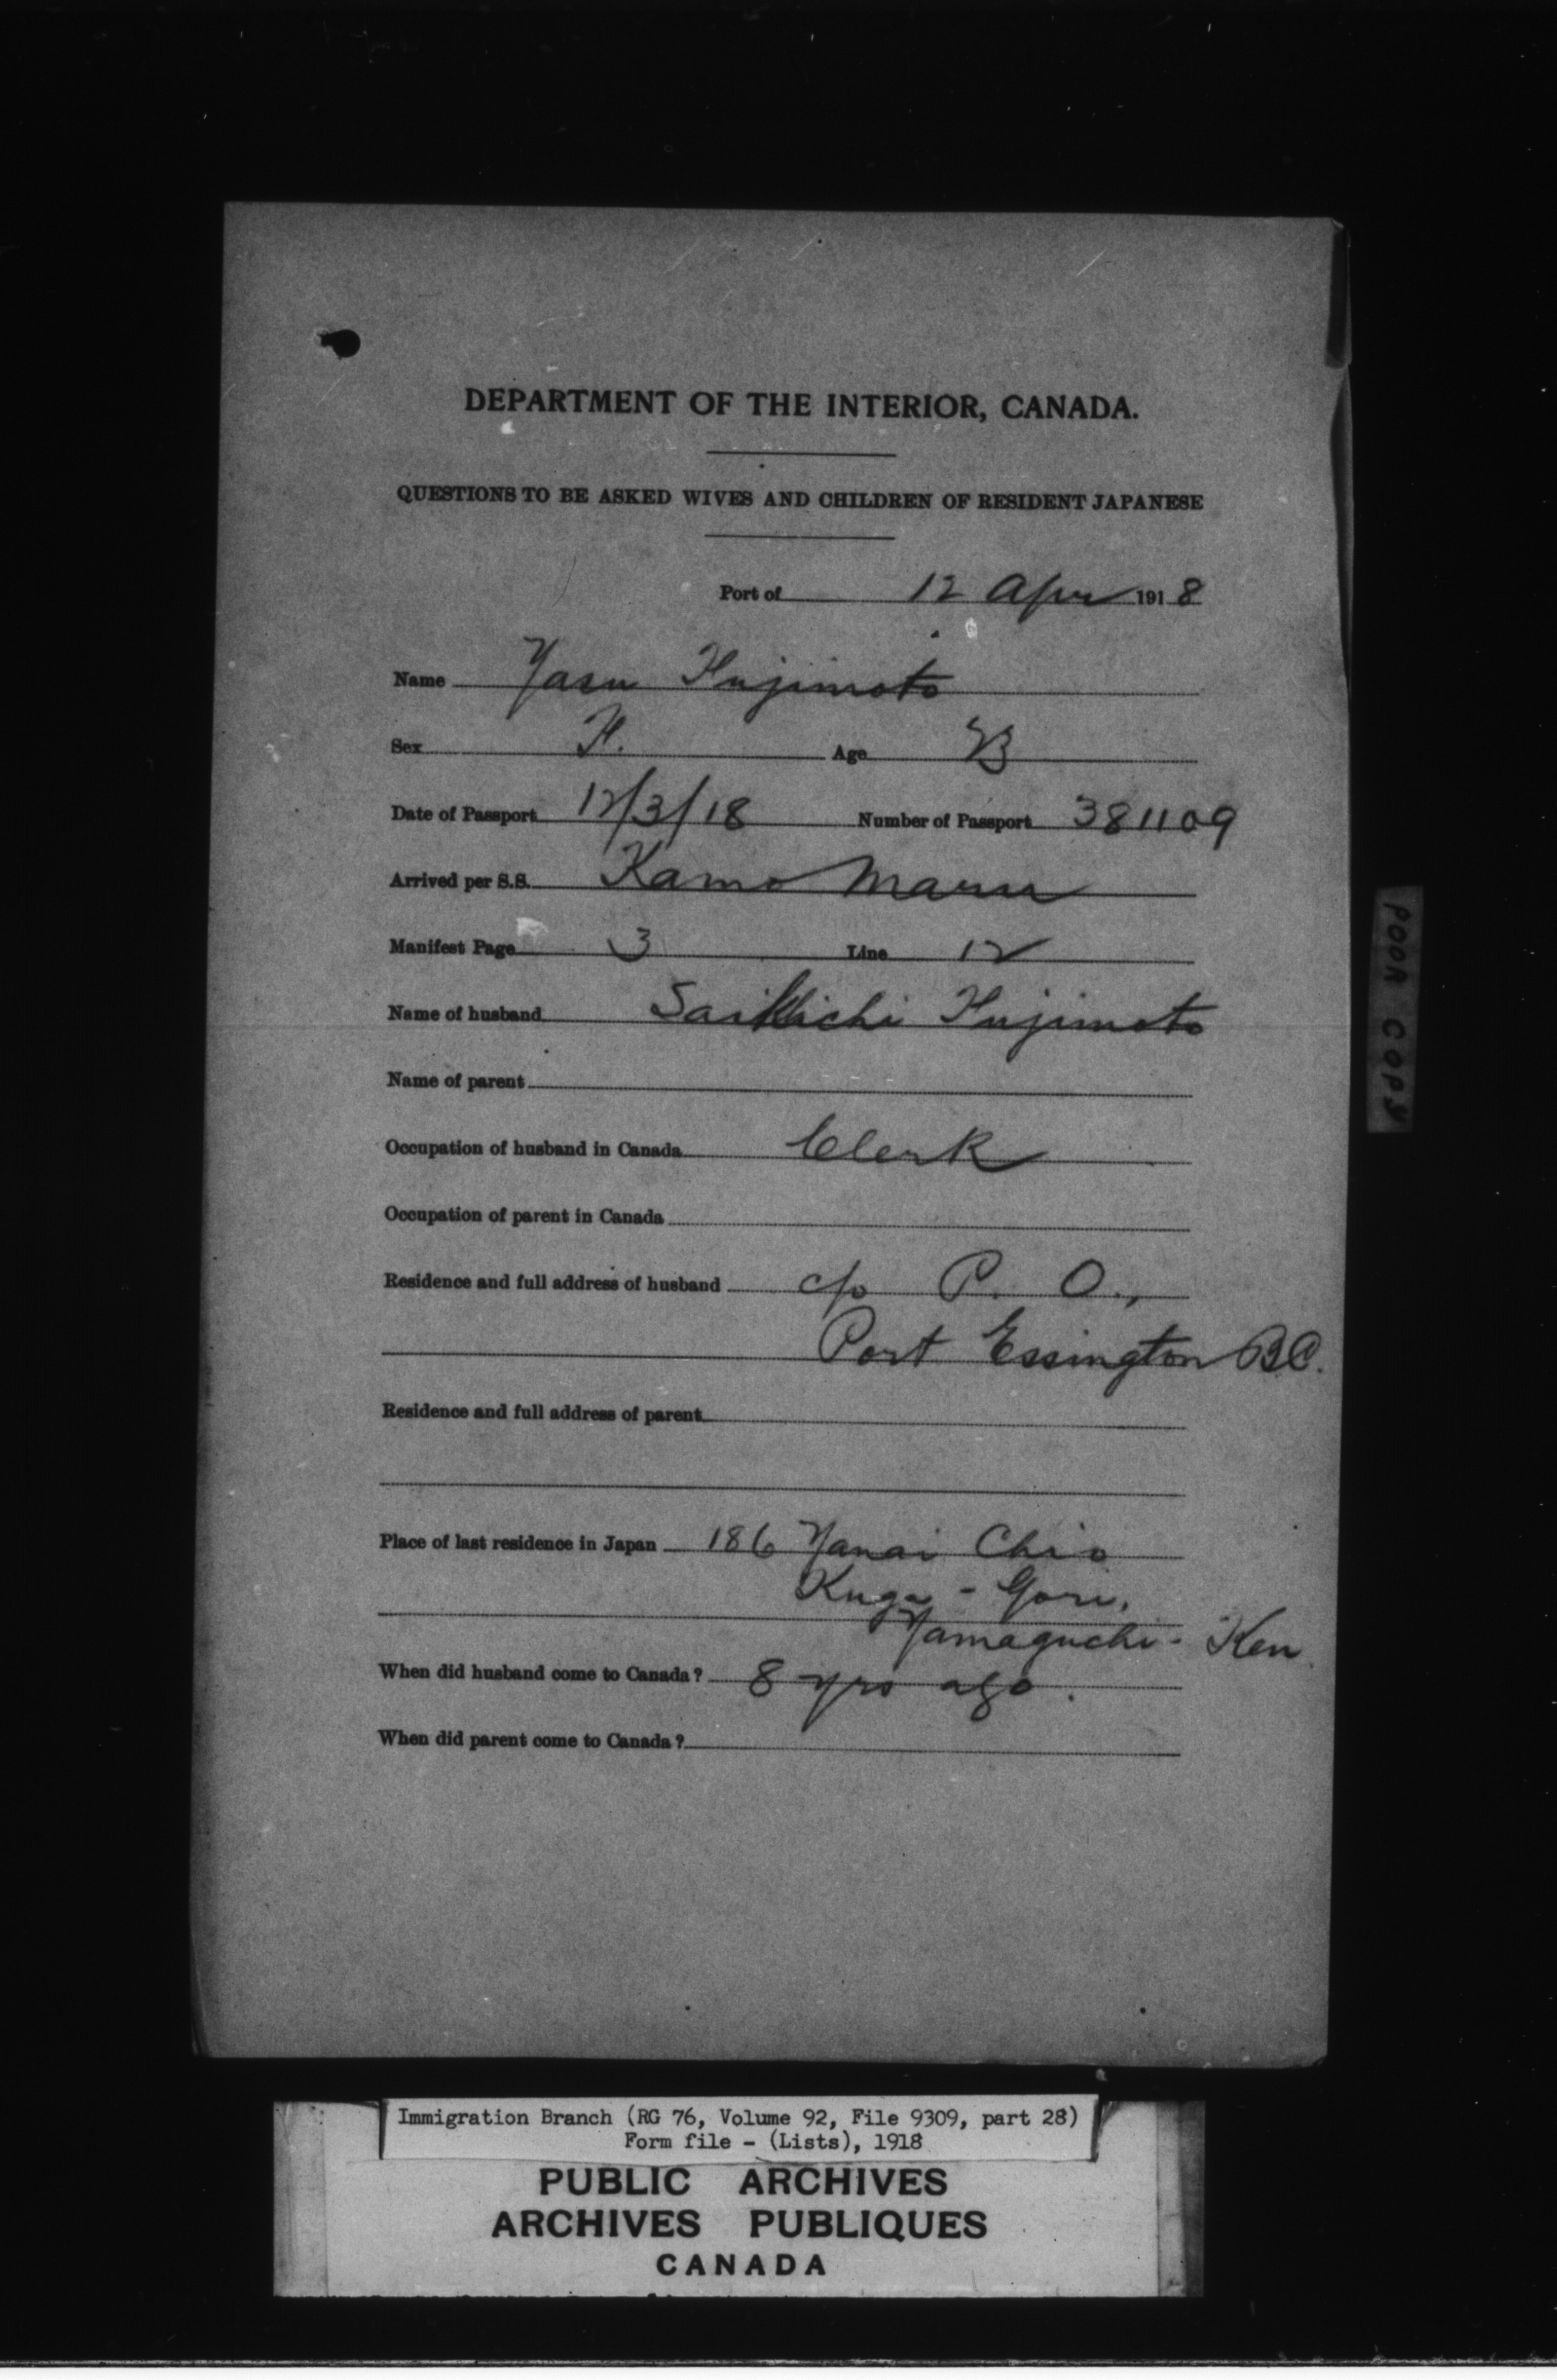 DEPARTMENT OF THE INTERIOR, CANADA.
QUESTIONS TO BE ASKED WIVES AND CHILDREN OF RESIDENT JAPANESE
Port of 12 Apr 1918
Name Yasu Fujimoto
Sex F. Age 23
Date of Passport 12/3/18 Number of Passport 381109
Arrived per S.S. Kamo Maru
Manifest Page 3 Line 12
Name of husband Saikichi Fujimoto
Name of parent
Occupation of husband in Canada Clerk
Occupation of parent in Canada
Residence and full address of husband c/o P. O.,
Port Essington B.C.
Residence and full address of parent
Place of last residence in Japan 186 Yanai Chio
Kuga - Gori,
Yamaguchi - Ken
When did husband come to Canada? 8 yrs ago.
When did parent come to Canada?
POOR COPY
Immigration Branch (RG 76, Volume 92, File 9309, part 28)
Form file - (Lists), 1918
PUBLIC ARCHIVES
ARCHIVES PUBLIQUES
CANADA